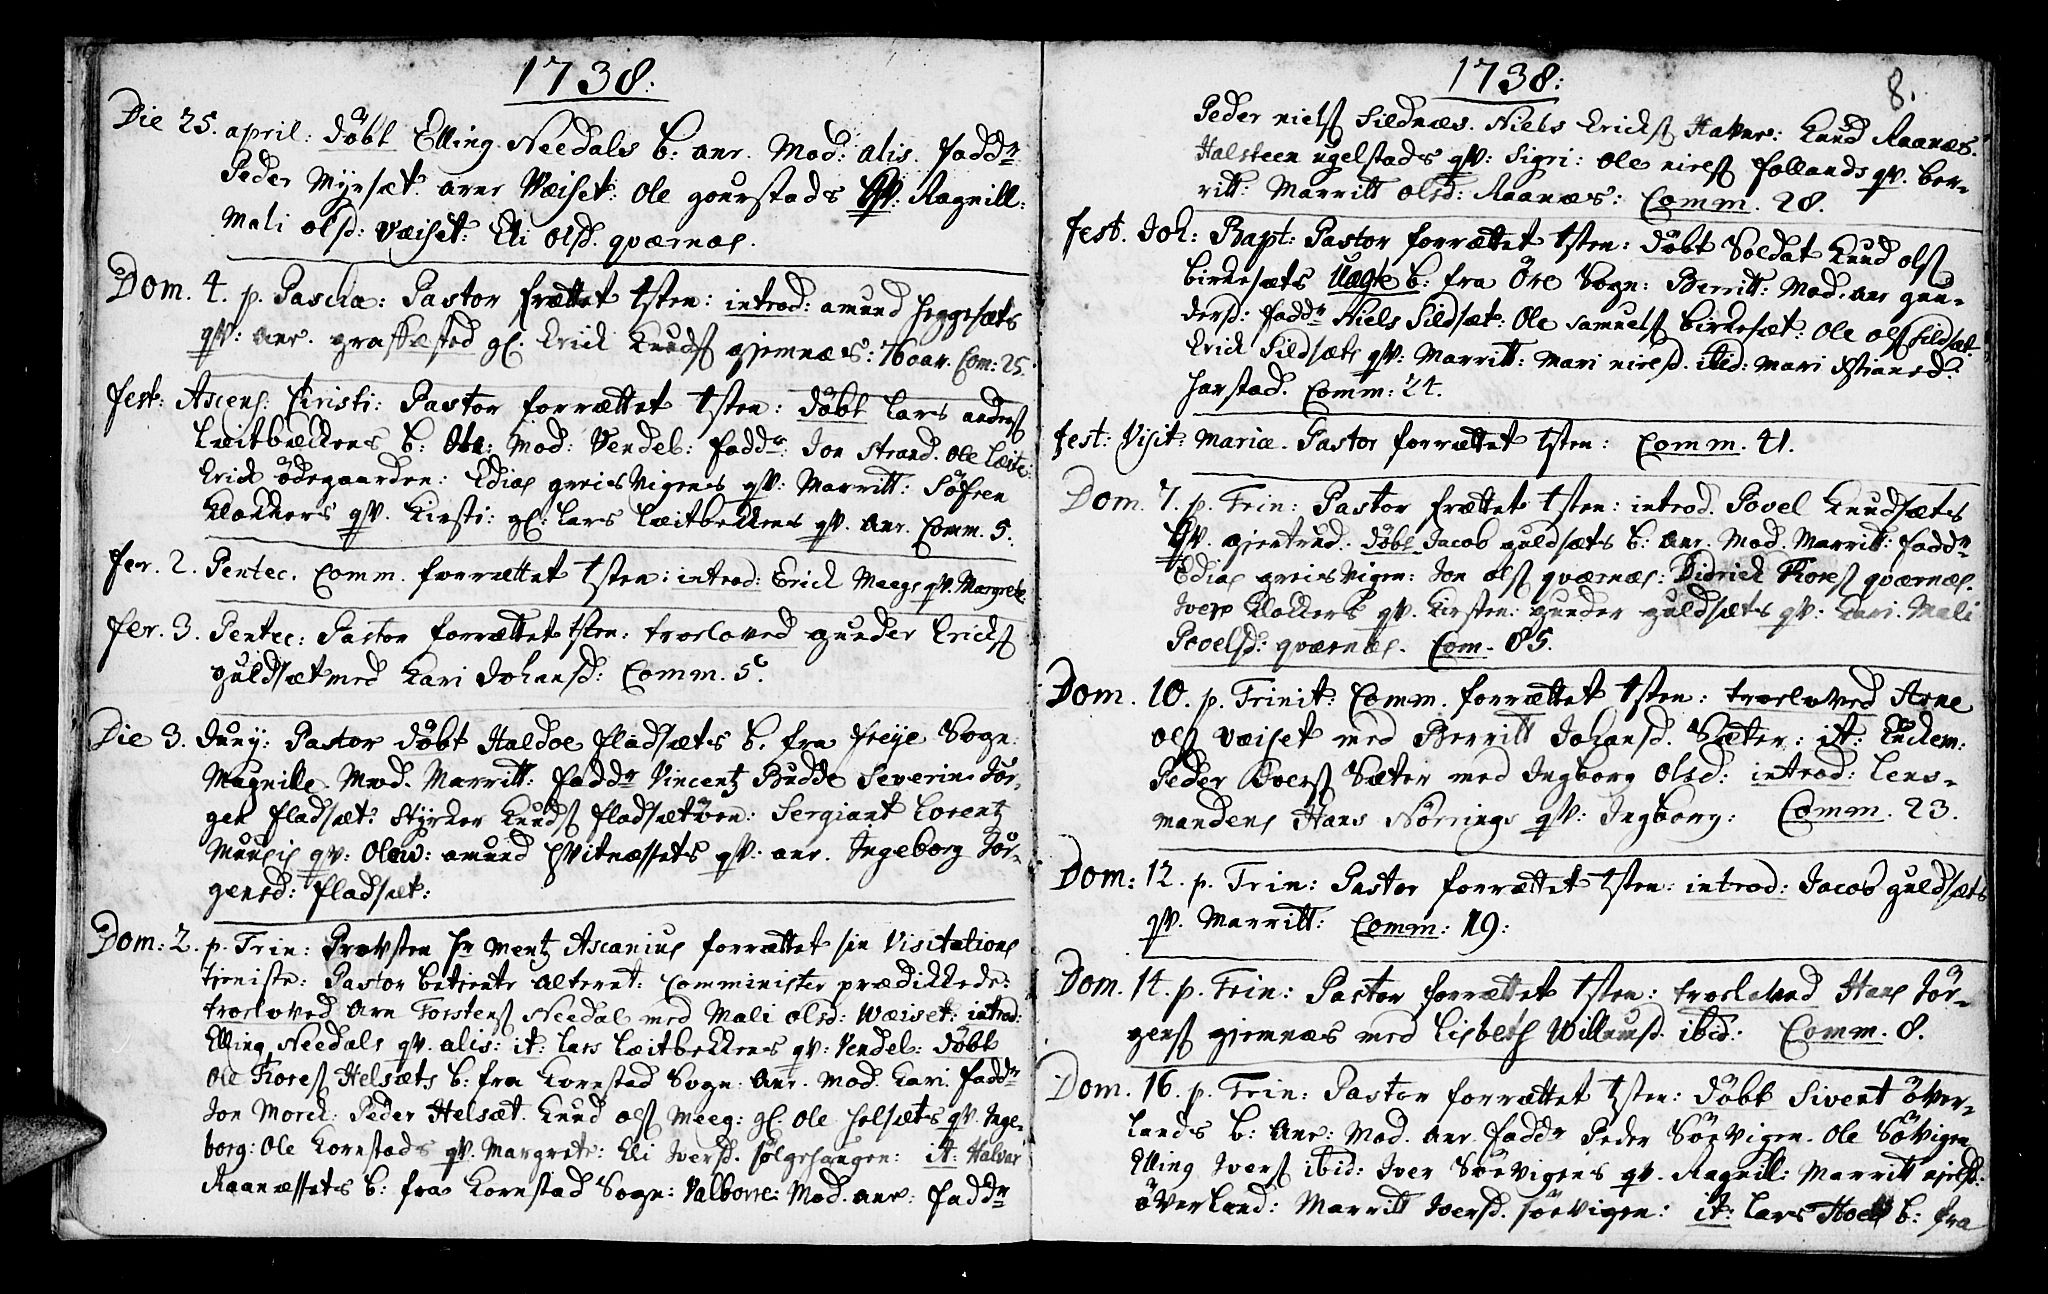 1738:
Die 25. april: döbt Elling Needals b: anr. Mod: alis. fadd:
Peder Myrsæt. arne Wæiset: Ole gourstads qv: Ragnill:
Mali olsd: væiset: Eli olsd. qværnes.
Dom. 4. p. Pascha: Pastor frættet tsten: introd: amund heggesæts
qv: anr. graffæsted gl. Erick Knudsß gjemnæs: 76 aar. Com: 25.
fest: Ascens: Christi: Pastor forrættet tsten: döbt Lars andersß
Leitbæckens b: Ole: Mod: Vendel: fadd: Jon Strand. Ole Leite:
Erick ödegaarden: Edias greisvigens qv: Marritt: Söfren
Klokkers qv. Kirsti: gl: Lars Leitbeckens qv. anr. Comm. 5.
fer. 2. Pentec. Comm. forrættet tsten: introd: Erick Meegs qv. Margrete.
fer. 3. Pentec: Pastor forrættet tsten: trolowed gunder Ericksß
guldsæt med Kari Johansd: Comm. 5.
Die 3. Juny: Pastor döbt Haldoe fladsæts b. fra freye Sogn:
Magnille Mod. Marritt: fadd: Vincentz Budde Severin Jör-
gen fladsæt: Styrker Knudsß fladsætöen: Sergiant Lorentz
Muusis qv: Olaw: amund Svitnæssets qv. anr. Ingeborg Jör-
gensd: fladsæt:
Dom: 2. p. Trin: Provsten Hr Mentz Ascanius forrættet sin Visitations
tieniste: Pastor betiente alteret: Comminister prædikkede:
trolowed Arn Torstensß Needal med Mali olsd: Wæiset: introd:
Elling Needals qv. alis: it: Lars Leitbekkens qv: Vendel: döbt
Ole Toresß Helsæts b: fra Kornstad Sogn: anr. Mod. Kari. fadd:
Jon Morck: Peder Helsæt. Knud olsß Meeg: gl. Ole helsæts qv. Inge-
borg: Ole Kornstads qv. Margrete: Eli Iversd. sölgehaugen: it: Halvar
Raanæssets b: fra Kornstad Sogn: Valborre: Mod. anr: fadd:
1738:
8.
Peder nielsß Sildnæs. Niels Ericksß Haknes: Knud Raanæs.
Halsteen ugelstads qv: Sigri: Ole nielsß follands qv. ber-
ritt: Marritt olsd: Raanæs: Comm. 28.
fest. Joh: Bapt: Pastor forrættet tsten: döbt Soldat Knud olsß
birkesæts Uægte b: fra Öre Sogn: Berritt: Mod. anr gun-
dersd: fadd: Niels Sildsæt: Ole Samuelsß birkesæt: Ole olsß Sildsæt.
Erick Sildsæts qv. Marritt: Mari nielsd. ibid: Mari
harstad. Comm: 24.
fest: Visit: Mariæ. Pastor forrættet tsten: Comm. 41.
Dom. 7. p. Trin: Pastor frættet tsten: introd. Povel Knudsæts
qv. gjertrud. döbt Jacob guldsæts b: anr. Mod. Marritt: fadd:
Edias greisvigen: Jon olsß qværnes: Didrick Toresß qværnes.
Ivers Klokkers qv. Kirsten: gunder guldsæts qv. Kari. Mali
Povelsd: qværnes. Com. 85.
Dom. 10. p. Trinit: Comm. forrættet tsten: trolowed Arne
olsß Væiset med Berritt Johansd. Sæter: it: Enckem:
Peder Iversß Sæter med Ingborg olsd: introd: Lens-
mandens Hans Nörrings qv: Ingborg: Comm. 23.
Dom: 12. p. Trin: Pastor forrættet tsten: introd: Jacob guldsæts
qv. Marritt: Comm: 19:
Dom. 14. p. Trin: Pastor forrættet tsten: trolowed Hans Jör-
gensß gjemnæs med Lisbeth Willumsd. ibid: Comm. 8.
Dom. 16. p. Trin: Pastor forrættet tsten: döbt Sivert över-
lands b: anr: Mod. anr. fadd: Peder Söevigen. Ole Sövigen
Elling Iversß ibid: Iver Söevigens qv. Ragnill: Marritt
överland: Marritt Iversd. söevigen: it: Lars b: fra